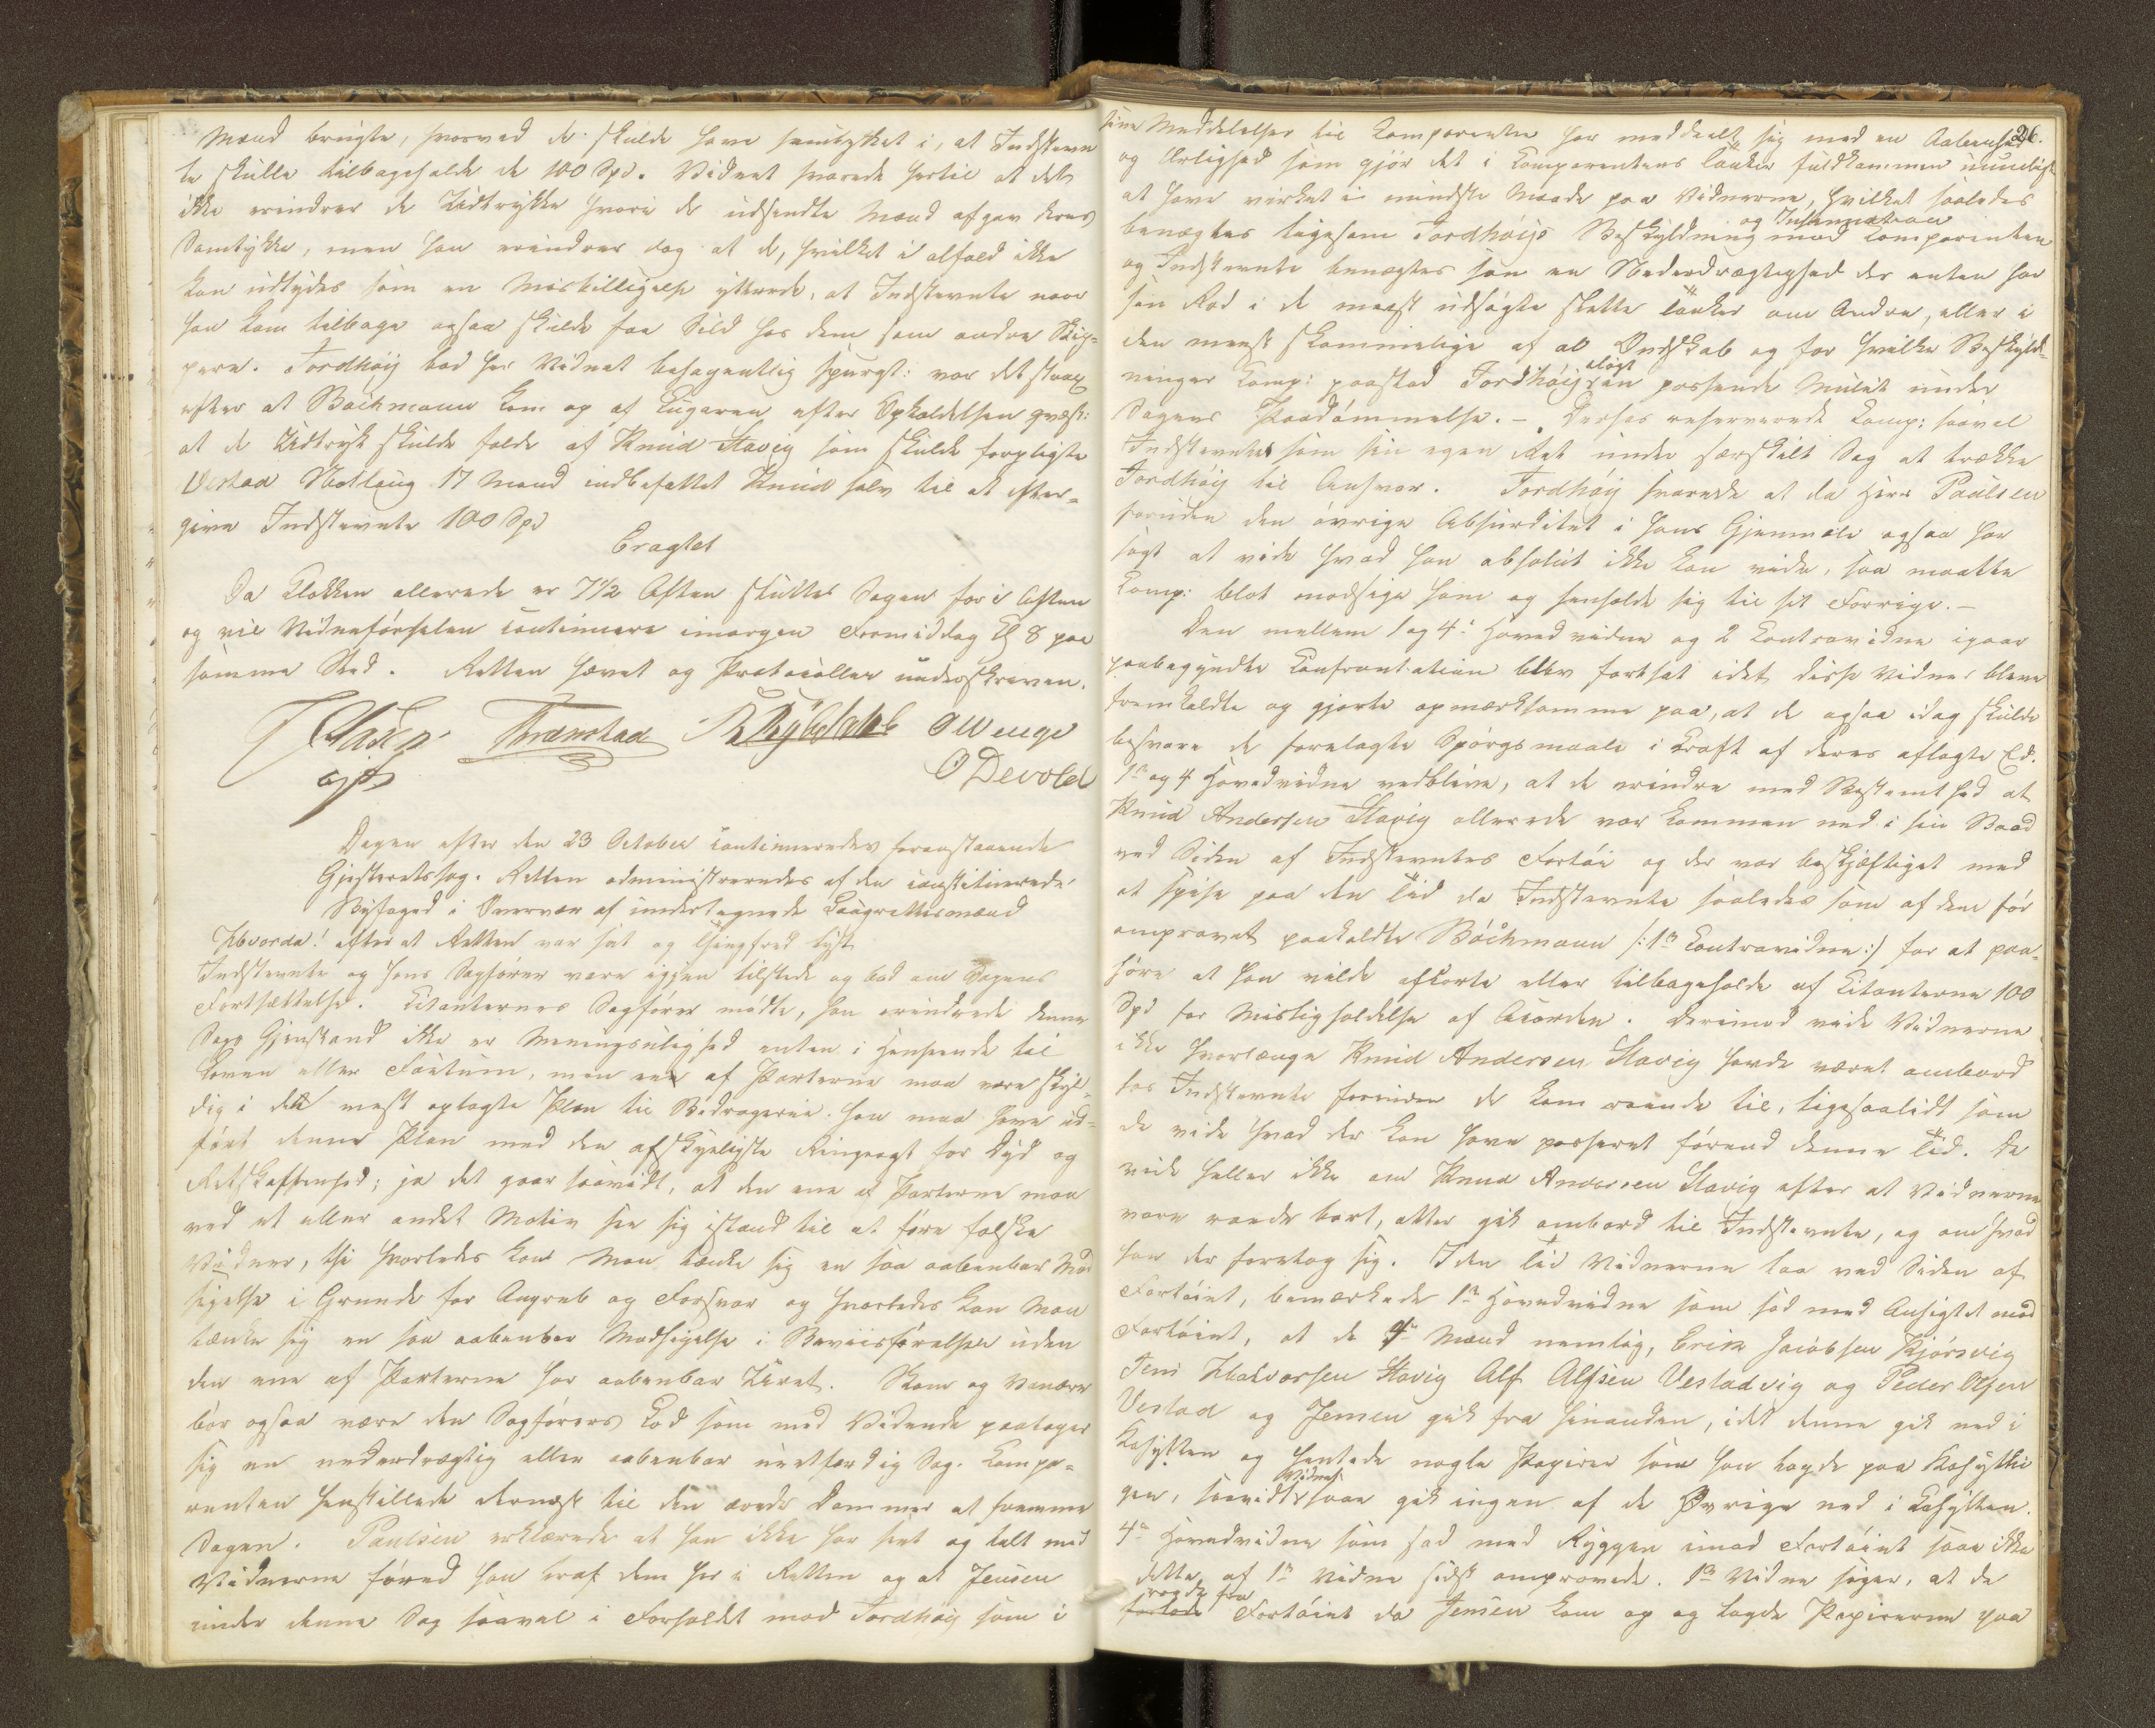 Mænd brugte, hvorved de skulde have samtykket i, at Indstevn
te skulle tilbageholde de 100 Spd. Vidnet svarede hertil at det
ikke erindrer de Udtrykke hvori de udsendte Mænd afgav deres
Samtykke, men han erindrer dog at de, hvilket i alfald ikke
kan udtydes som en Misbilligelse yttrede, at Indstevnte naar
han kom tilbage ogsaa skulde faa Sild hos dem som andre Skip-
pere. Tordhøy bad her Vidnet besagentlig spurgt: var det strax
efter at Bøckmann kom op af Lugaren efter Opkaldelsen
at de Udtryk skulde falde af Knud Stavig som skulde forpligte
Vestad Notlaug 17 Mand indbefattet Knud selv til at efter-
give Indstevnte 100 Spd
Eragtet
Da Klokken allerede er 7 1/2 Aften sluttes Sagen for i Aften
og vil Vidneførselen continuere imorgen Formiddag Kl 8 paa
samme Sted. Retten hævet og Protocollen underskreven.
O Wenge
O Devold
Dagen efter den 23 October continueredes foranstaaende
Gjesteretssag. Retten administreredes af den constituerede
Byfoged i Overvær af undertegnede Laugrettesmænd
Hvorda! efter at Retten var sat og Thingfred lyst
Indstevnte og hans Sagfører vare igjen tilstede og bad om Sagens
Fortsættelse. Citanternes Sagfører mødte, han erindrede denne
Sags Gjenstand ikke er Meningsulighed enten i Henseende til
Loven eller Factum, men een af Parterne maa være skyl-
dig i den mest oplagte Plan til Bedragerie. han maa have ud-
ført denne Plan med den afskyeligste Ringeagt for Dyd og
Retskaffenhed; ja det gaar saavidt, at den ene af Parterne maa
ved et eller andet Motiv see sig istand til at føre falske
Vidner, thi hvorledes kan Man tænke sig en saa aabenbar Mod
sigelse i Grunde for Angreb og Forsvar og hvorledes kan Man
tænke sig en saa aabenbar Modsigelse i Beviisførelsen uden
den ene af Parterne har aabenbar Uret. Skam og Vanære
bør ogsaa være den Sagførers Lod som med Vidende paatager
sig en nederdrægtig eller aabenbar uretfærdig Sag. Compa-
renten henstillede dernæst til den ærede Dommer at fremme
Sagen. Paulsen erklærede at han ikke har seet og talt med
Vidnerne førend han traf dem her i Retten og at Jensen
under denne Sag saavel i Forholdet mod Tordhøy som i
26.
sine Meddelelser til Comparenten har meddeelt sig med en Aabenhed
og Ærlighed som gjør det i Comparentens Tanker fuldkommen umuligt
at have virket i mindste Maade paa Vidnerne, hvilket saaledes
benægtes ligesom Tordhøys Beskyldning og Insinuation mod Comparenten
og Indstevnte benægtes som en Nederdrægtighed der enten har
sin Rod i de meest udsøgte slette Tanker om Andre, eller i
den meest skammelige af al Ondskab og for hvilke Beskyld-
ninger Comp: paastod Tordhøy ilagt en passende Mulct under
Sagens Paadømmelse. – Derhos reserverede Comp: saavel
Indstevntes som sin egen Ret under særskilt Sag at trække
Tordhøy til Ansvar. Tordhøy svarede at da Herr Paulsen
foruden den øvrige Absurditet i hans Gjenmæle ogsaa har
sagt at vide hvad han absolut ikke kan vide, saa maatte
Comp: blot modsige ham og henholde sig til sit Forrige. –
Den mellem 1 og 4de Hovedvidne og 2 Contravidne igaar
paabegyndte Confrontation blev fortsat idet disse Vidner bleve
fremkaldte og gjorte opmærksomme paa, at de ogsaa idag skulde
besvare de forelagte Spørgsmaale i Kraft af deres aflagte Ed.
1ste og 4 Hovedvidne vedblive, at de erindre med Bestemthed at
Knud Andersen Stavig allerede var kommen ned i sin Baad
ved Siden af Indstevntes Fartøi og der var beskjæftiget med
at spise paa den Tid da Indstevnte saaledes som af dem før
omprovet paakaldte Bøckmann /: 1ste Contravidne :/ for at paa-
høre at han vilde afkorte eller tilbageholde af Citanterne 100
Spd for Misligholdelse af Accorden. Derimod vide Vidnerne
ikke hvorlænge Knud Andersen Stavig havde været ombord
hos Indstevnte forinden de kom roende til, ligesaalidt som
de vide hvad der kan have passeret førend denne Tid. De
vide heller ikke om Knud Andersen Stavig efter at Vidnerne
vare roede bort, atter gik ombord til Indstevnte, og om hvad
han der foretog sig. I den Tid Vidnerne laa ved Siden af
Fartøiet, bemærkede 1ste Hovedvidne som sad med Ansigtet mod
Fartøiet, at de 4re Mænd nemlig, Erik Jacobsen Kjørsvig
Jens Halvorsen Stavig Alf Alfsen Vestadvig og Peder Olsen
Vestad og Jensen gik fra hinanden, idet denne gik ned i
Kahytten og hentede nogle Papirer som han lagde paa Kahytski
gen, saavidt Vidnet saae gik ingen af de Øvrige ned i Kahytten.
4de Hovedvidne som sad med Ryggen imod Fartøiet saae ikke
dette af 1ste Vidne sidst omprovede. 1ste Vidne siger, at de
roede fra Fartøiet da Jensen kom op og lagde Papirerne paa